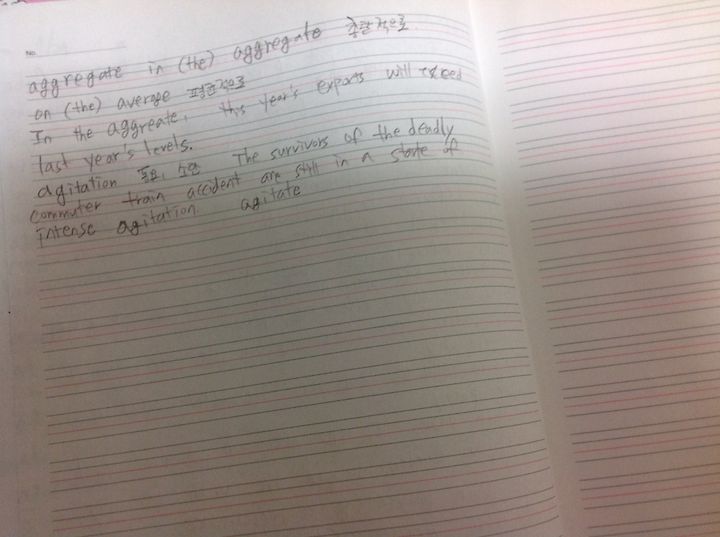 No.
aggregate in (the) aggregate 총괄적으로
on (the) average 평균적으로
In the aggreate, this year's exports will exceed
last year's levels.
agitation 동요, 소란 The survivors of the deadly
commuter train accident are still in a state of
intense agitation. agitate